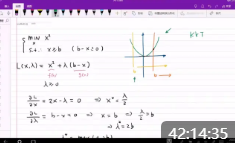 min x²
s.t. x≥b (b-x≤0)
KKT
L(x,λ)= x² + λ(b-x)
λ≥0
∂L/∂x = 2x-λ = 0 ⇒ x* = λ/2
∂L/∂λ = b-x = 0 ⇒ x = b ⇒ λ/2 = b
⇒ λ* = 2b
42:14:35